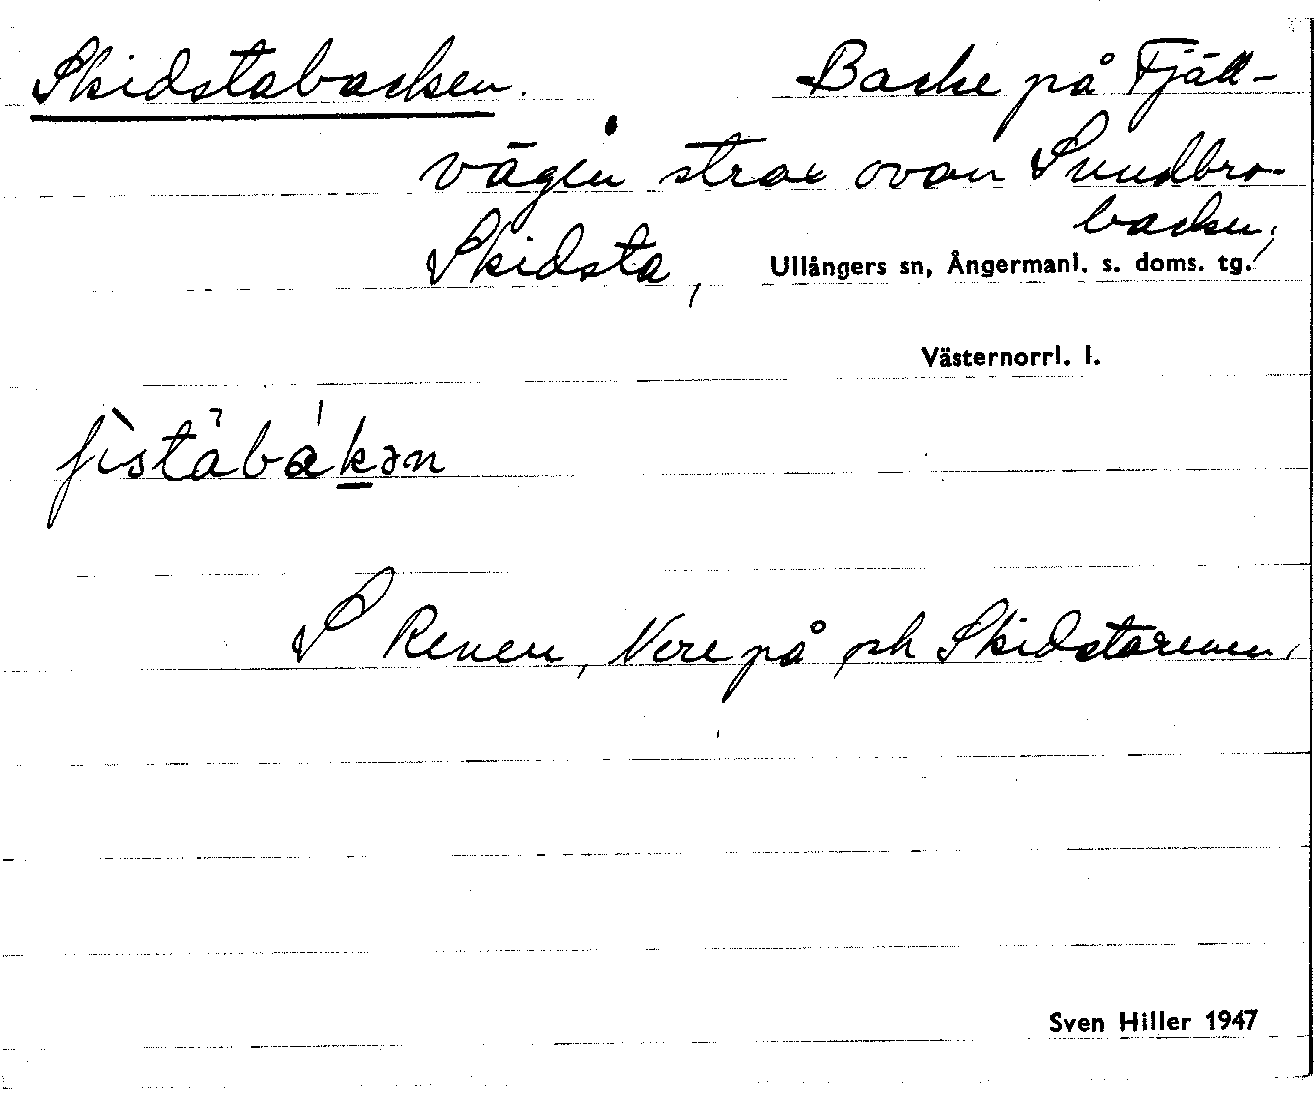 Skidstabacken. Backe på Fjäll-
vägen strax ovan Sundbro-
backen,
Skidsta, Ullångers sn, Ångermanl. s. doms. tg.
Västernorrl. l.
S Renen, Nere på och Skidstarenen,
Sven Hiller 1947